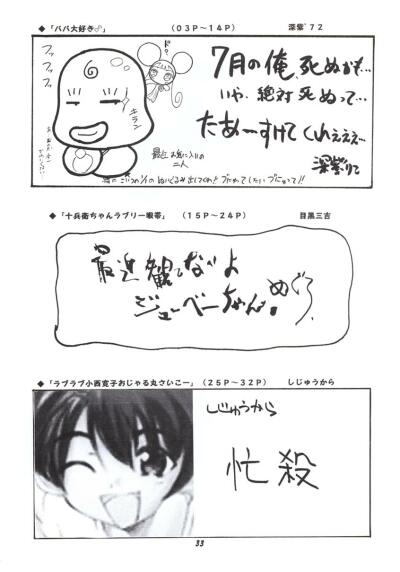 ◆「パパ大好き♂」 (03P〜14P) 深紫'72
フッフッフッ
ド?
キラン
7月の俺、死ぬかも…
いや、絶対死ぬって…
たあーすけてくれぇぇぇ…
深紫'りて
最近お気に入りの
二人
◆「十兵衛ちゃんラブリー眼帯」 (15P〜24P) 目黒三吉
最近観てないよ
ジューベーちゃん。
めぐろ
◆「ラブラブ小西寛子おじゃる丸さいこー」 (25P〜32P) しじゅうから
しじゅうから
忙殺
33